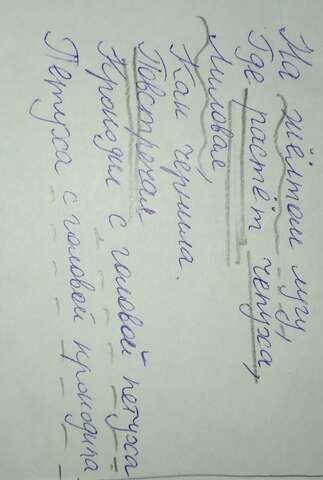 На жёлтом лугу,
Где растёт чепуха,
Лиловая,
Как чернила.
Повстречал
Крокодил с головой петуха
Петуха с головой крокодила